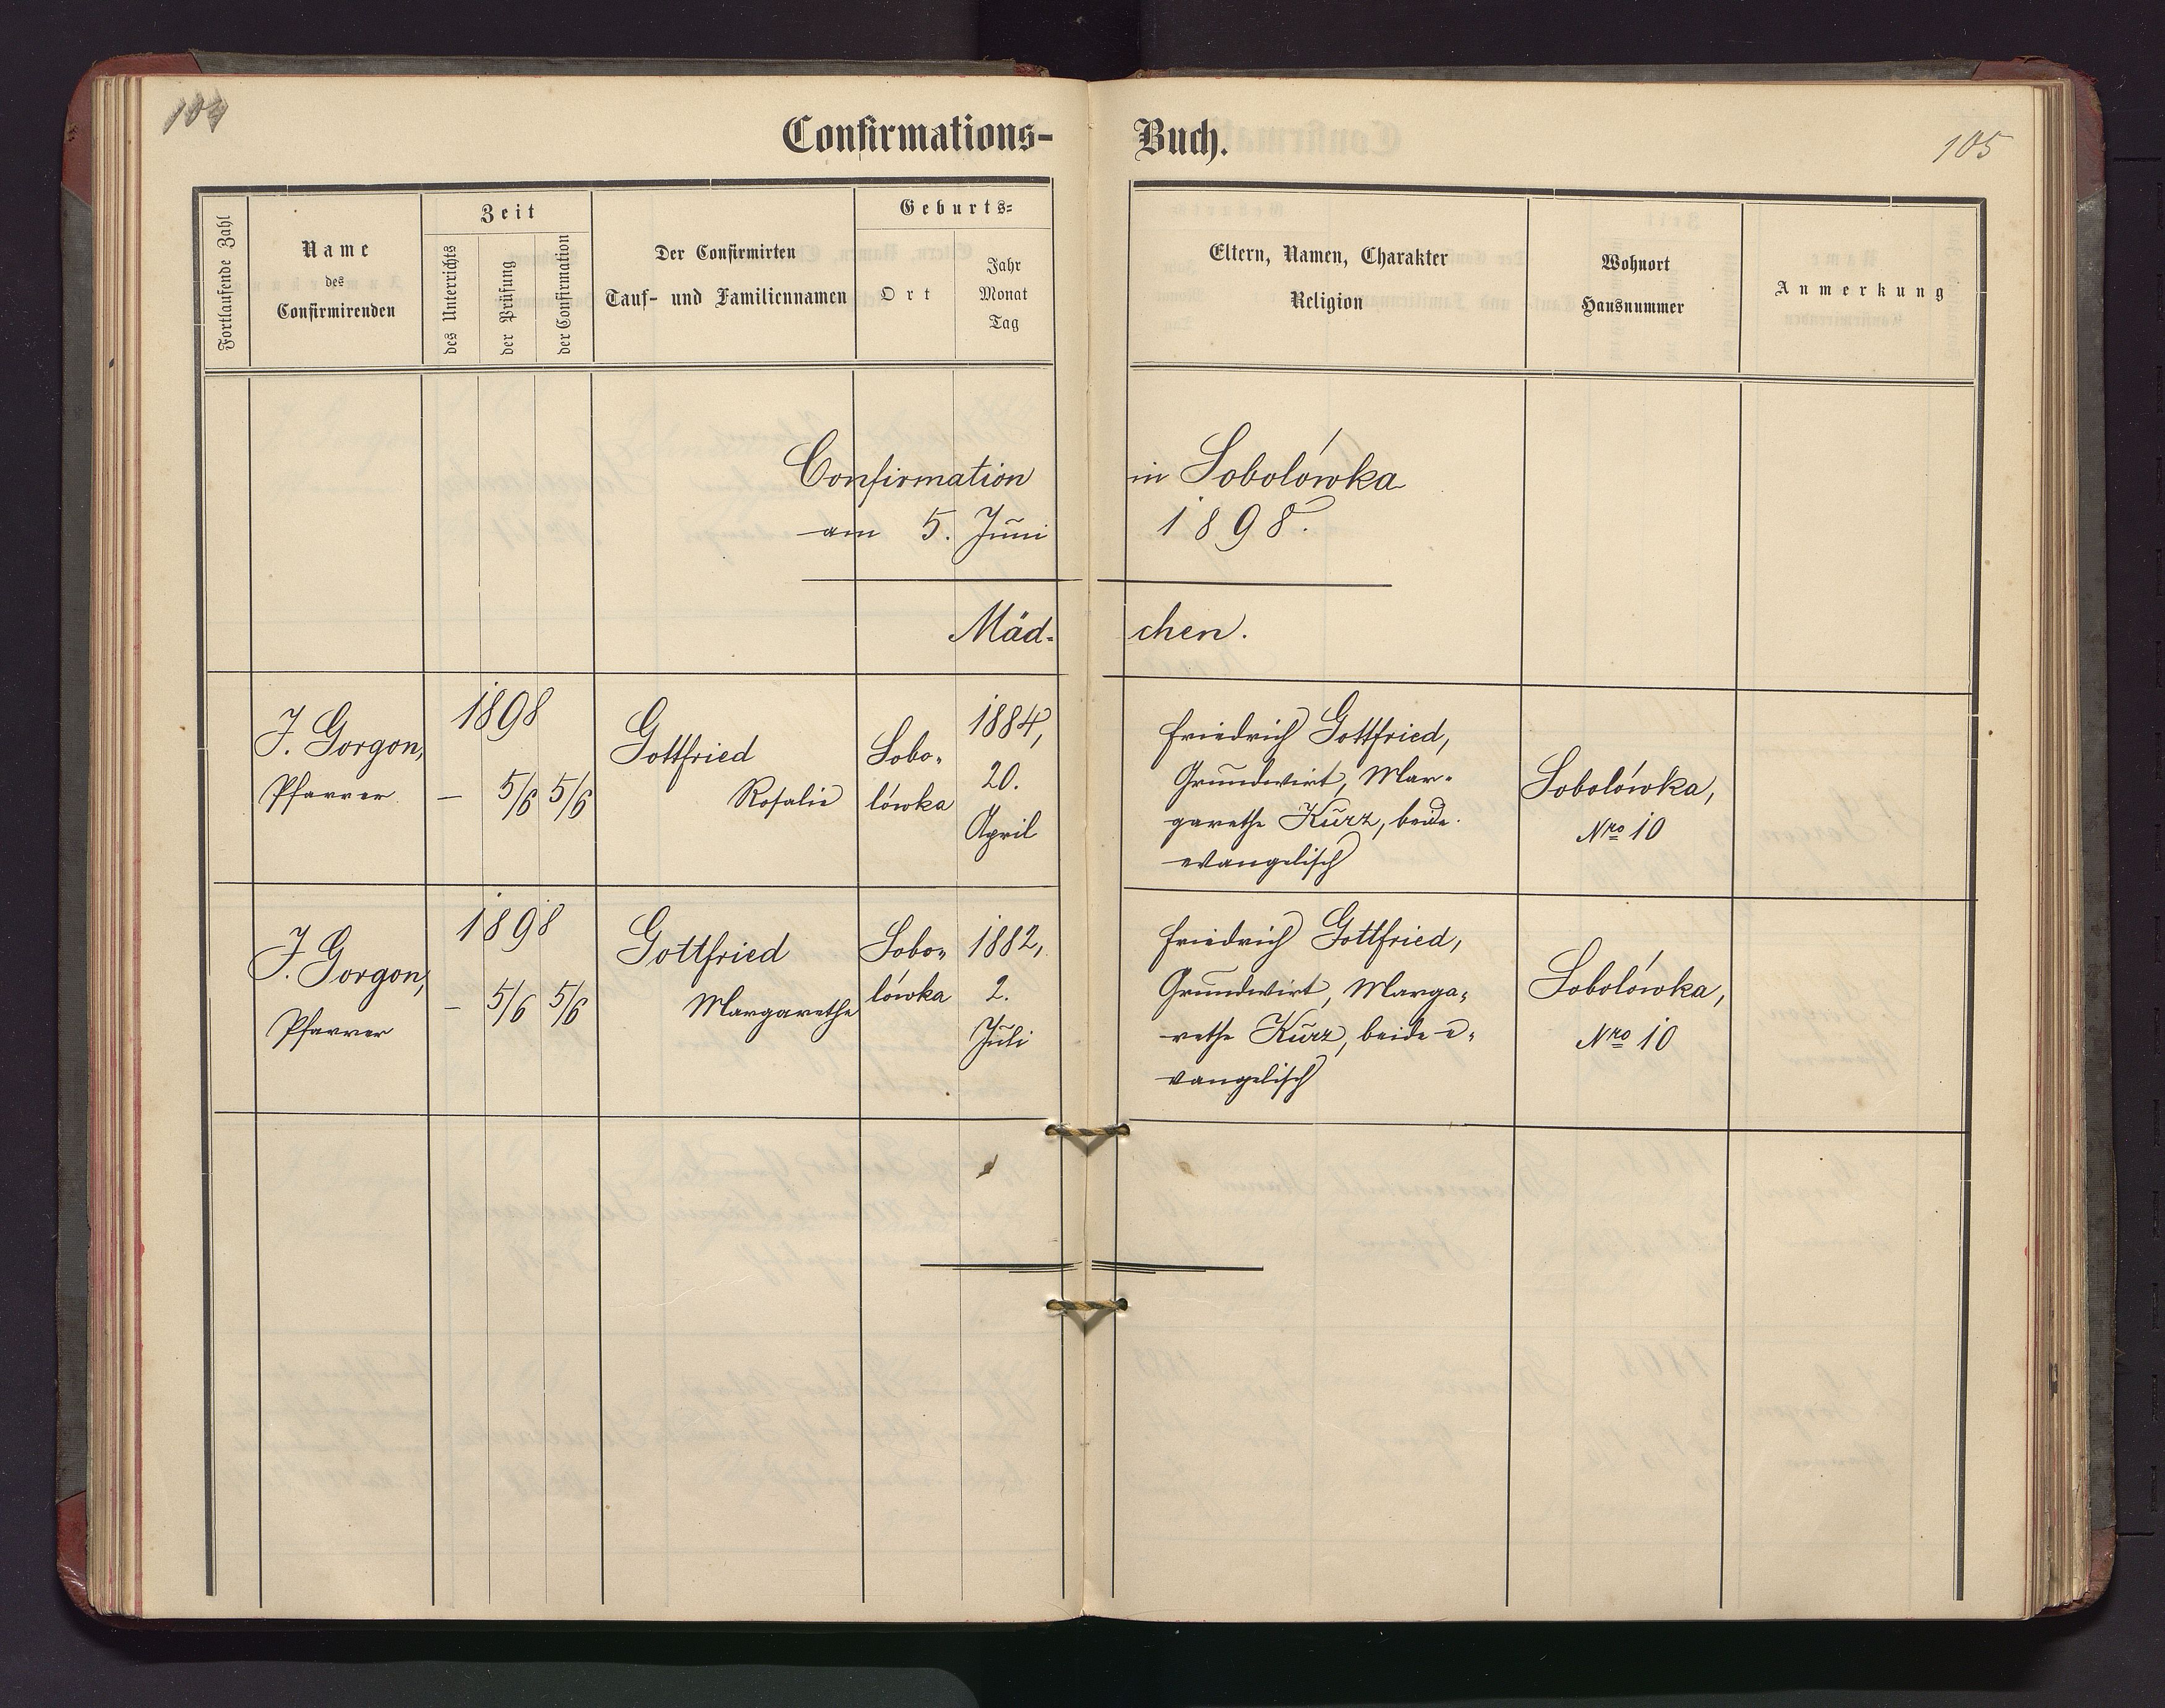 104
Confirmations-
Buch.
105
Fortlaufende Zahl
Name
des
Confirmirenden
Zeit
des Unterrichts
der Prüfung
der Confirmation
Der Confirmirten
Tauf- und Familiennamen
Geburts-
Ort
Jahr
Monat
Tag
Eltern, Namen, Charakter
Religion
Wohnort
Hausnummer
Anmerkung
Confirmation in Sobolówka
am 5. Juni 1898.
Mäd- chen.
J. Gorgon,
Pfarrer
1898
— 5/6 5/6
Gottfried
Rosalie
Sobo-
lówka
1884,
20.
April
Friedrich Gottfried,
Grundwirt, Mar-
garethe Kurz, beide
evangelisch
Sobolówka,
Nro 10
J. Gorgon,
Pfarrer
1898
— 5/6 5/6
Gottfried
Margarethe
Sobo-
lówka
1882,
2.
Juli
Friedrich Gottfried,
Grundwirt, Marga-
rethe Kurz, beide e-
vangelisch
Sobolówka,
Nro 10